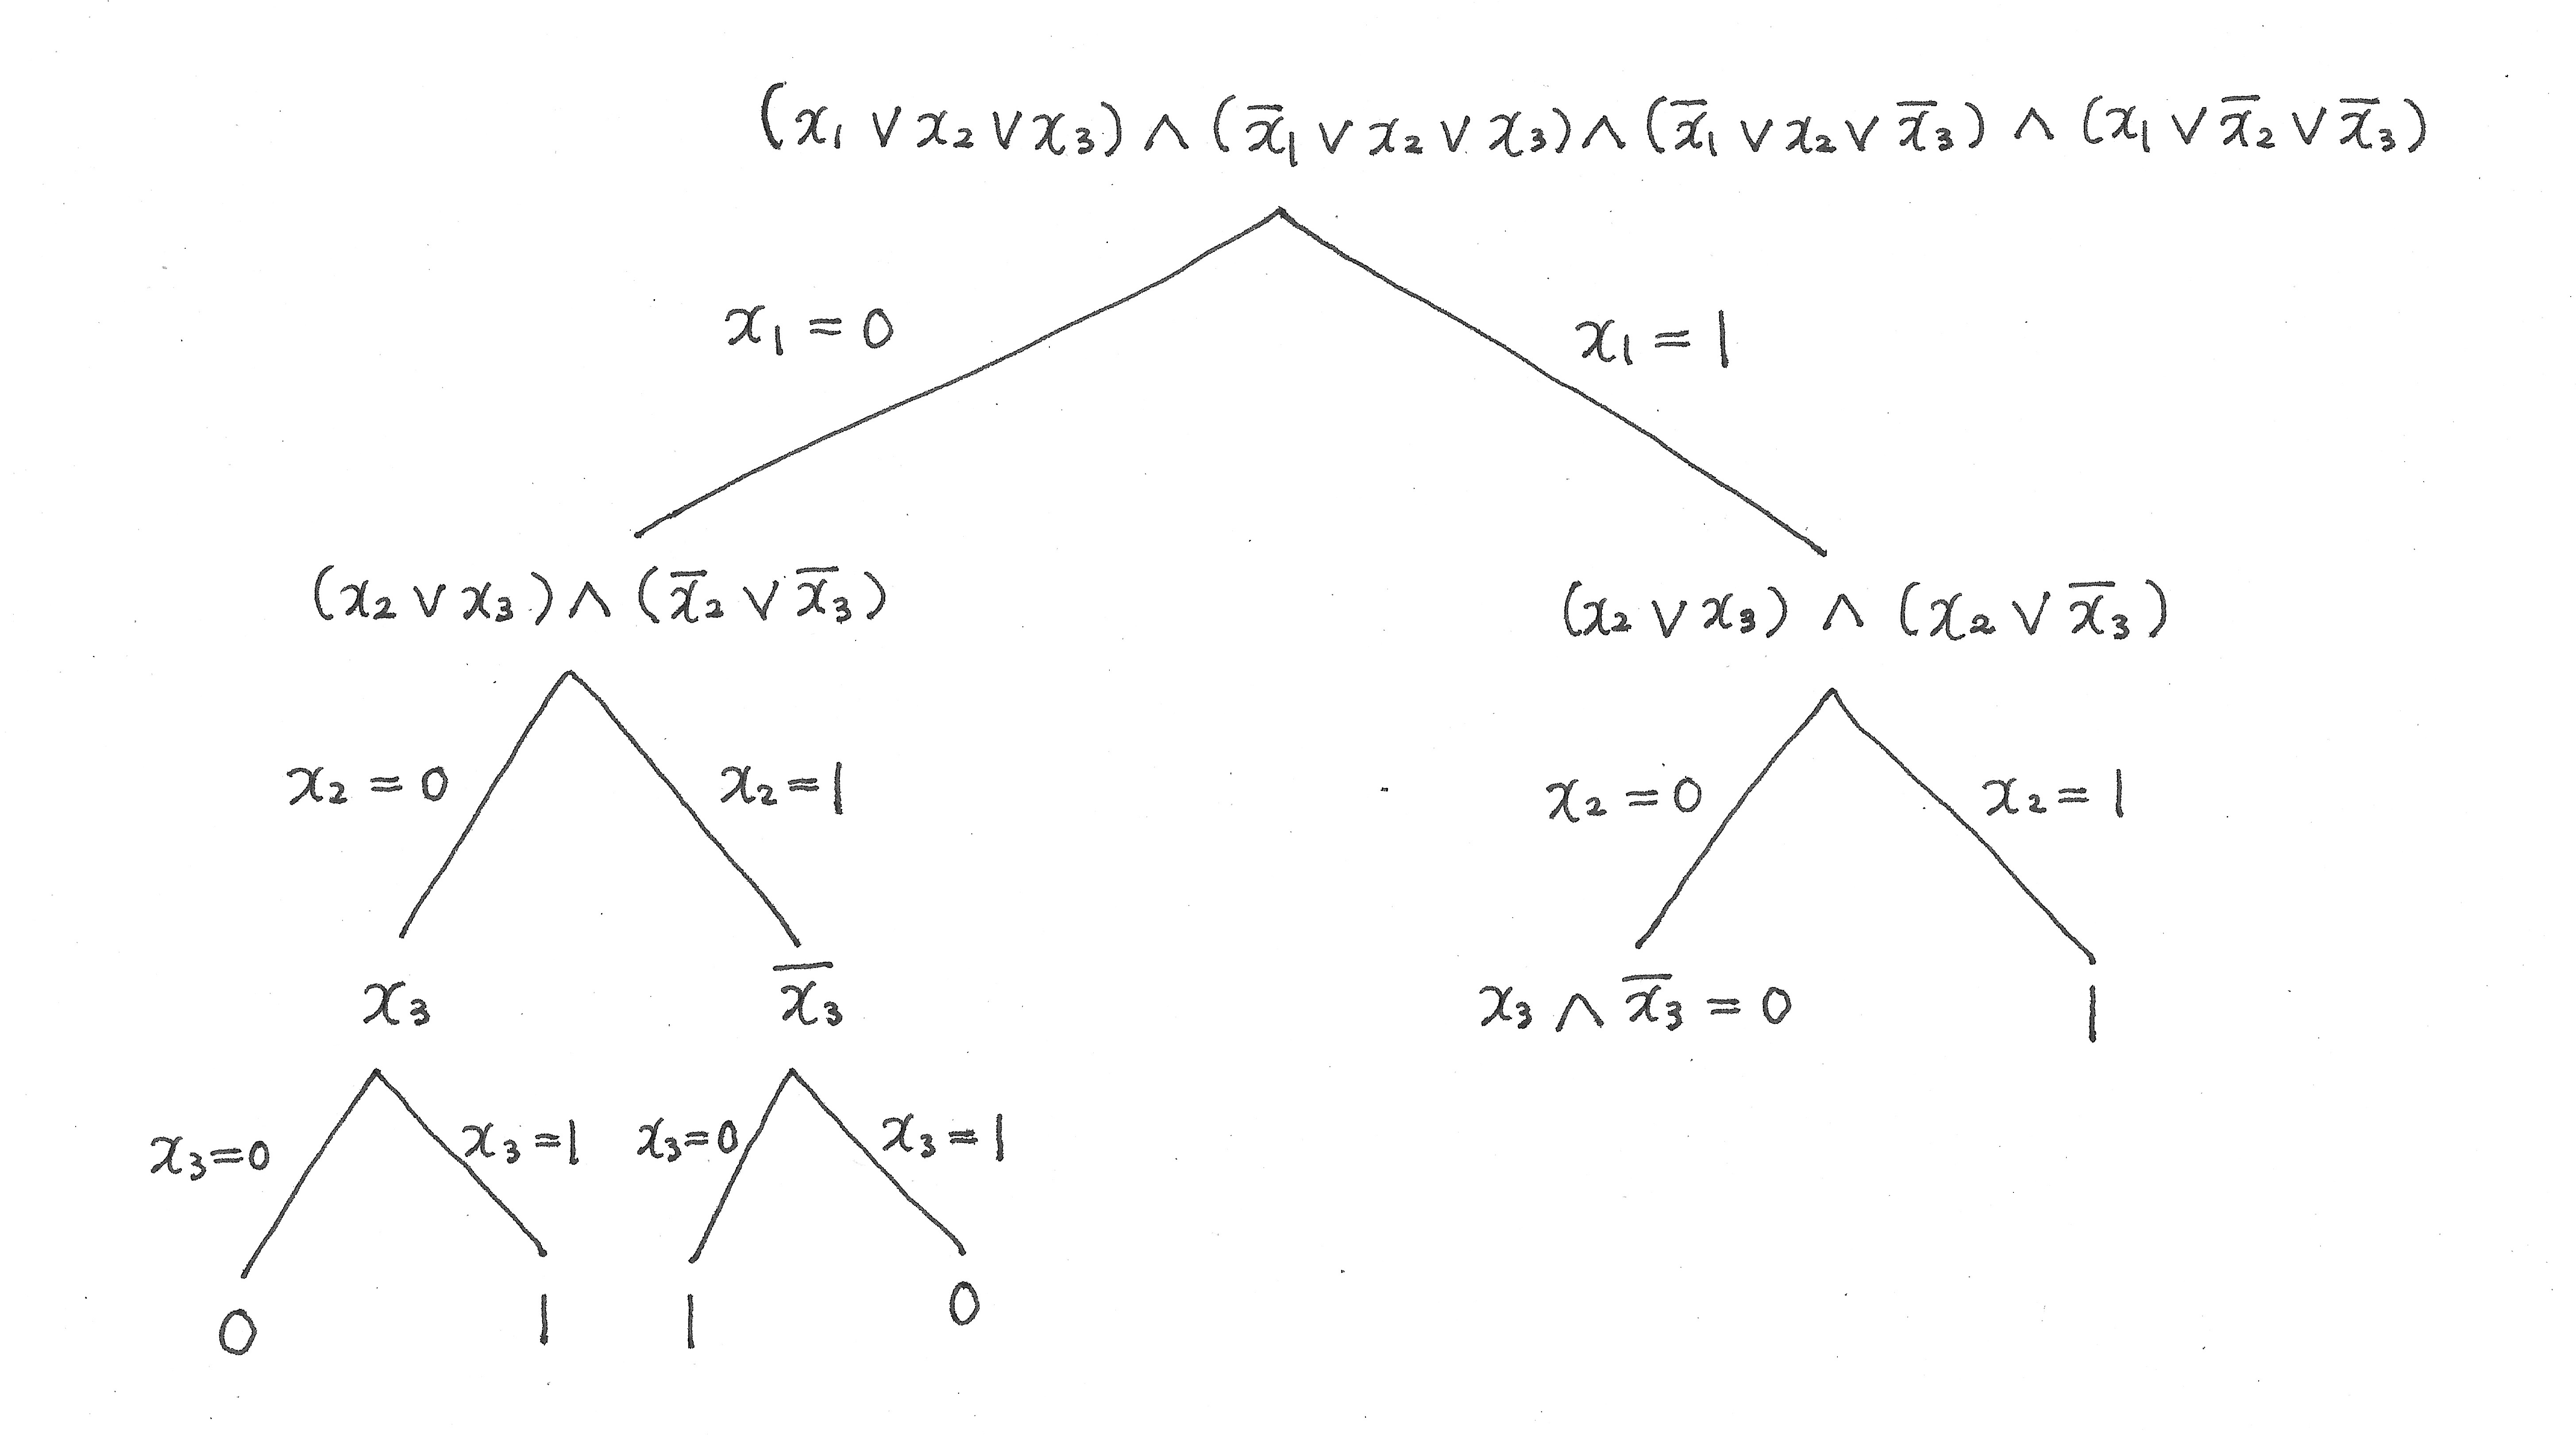 (x₁ ∨ x₂ ∨ x₃) ∧ (x̅₁ ∨ x₂ ∨ x₃) ∧ (x̅₁ ∨ x₂ ∨ x̅₃) ∧ (x₁ ∨ x̅₂ ∨ x̅₃)
x₁ = 0
x₁ = 1
(x₂ ∨ x₃) ∧ (x̅₂ ∨ x̅₃)
(x₂ ∨ x₃) ∧ (x₂ ∨ x̅₃)
x₂ = 0
x₂ = 1
x₂ = 0
x₂ = 1
x₃
x̅₃
x₃ ∧ x̅₃ = 0
1
x₃ = 0
x₃ = 1
x₃ = 0
x₃ = 1
0
1
1
0